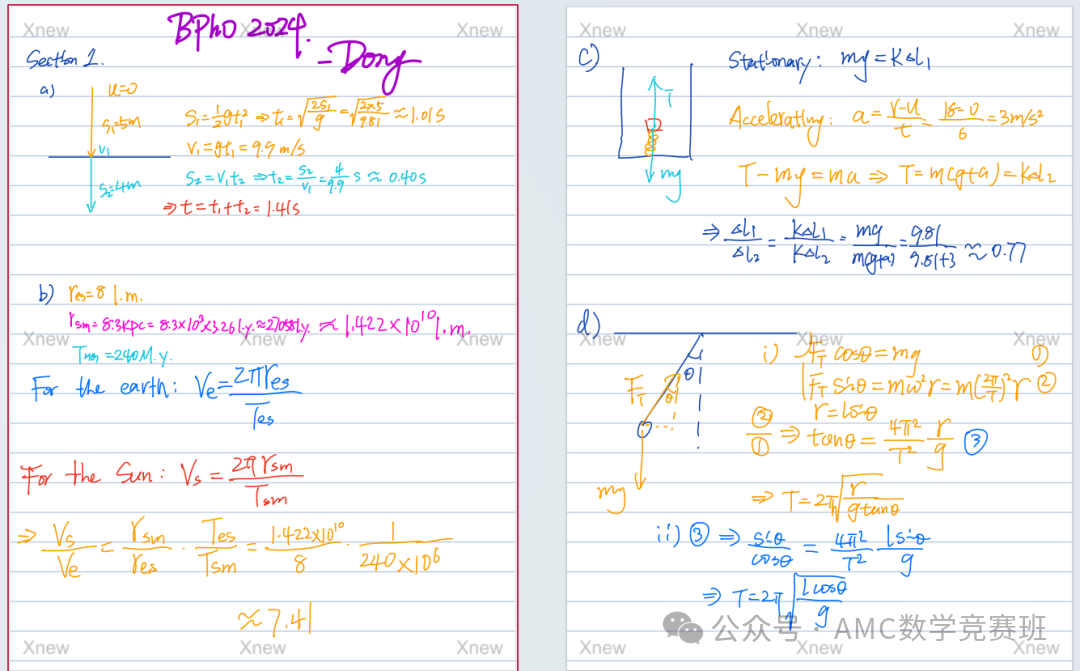 Xnew Xnew Xnew
BPhO 2024.
- Dong
Section 1.
a)
u=0
S₁=5m
V₁
S₂=4m
S₁=½gt₁² ⇒ t₁=√(2S₁/g)=√(2×5/9.81)≈1.01s
V₁=gt₁=9.9 m/s
S₂=V₁t₂ ⇒ t₂=S₂/V₁=4/9.9 s ≈ 0.40s
⇒ t=t₁+t₂=1.41s
b) res=8 l.m.
rsm=8.3kpc=8.3×10³×3.26 l.y.≈27058 l.y. ≈ 1.422×10¹⁰ l.m.
Xnew Xnew Xnew
=240M.y.
For the earth: Ve=2πres/Tes
For the Sun: Vs=2πrsm/Tsm
⇒ Vs/Ve=rsm/res·Tes/Tsm=1.422×10¹⁰/8·1/240×10⁶
≈7.41
Xnew Xnew Xnew
Xnew Xnew Xnew
c)
Stationary: mg=KΔL₁
T
mg
Accelerating: a=V-u/t=18-0/6=3m/s²
T-mg=ma ⇒ T=m(g+a)=KΔL₂
⇒ ΔL₁/ΔL₂=KΔL₁/KΔL₂=mg/m(g+a)=9.81/9.81+3≈0.77
d)
Xnew Xnew Xnew
θ
FT
θ
mg
i) FT cosθ=mg ①
FT sinθ=mω²r=m(2π/T)²r ②
r=lsinθ
②/① ⇒ tanθ=4π²/T² r/g ③
⇒ T=2π√(r/gtanθ)
ii) ③ ⇒ sinθ/cosθ=4π²/T² lsinθ/g
⇒ T=2π√(lcosθ/g)
公众号 · AMC数学竞赛班
Xnew Xnew Xnew